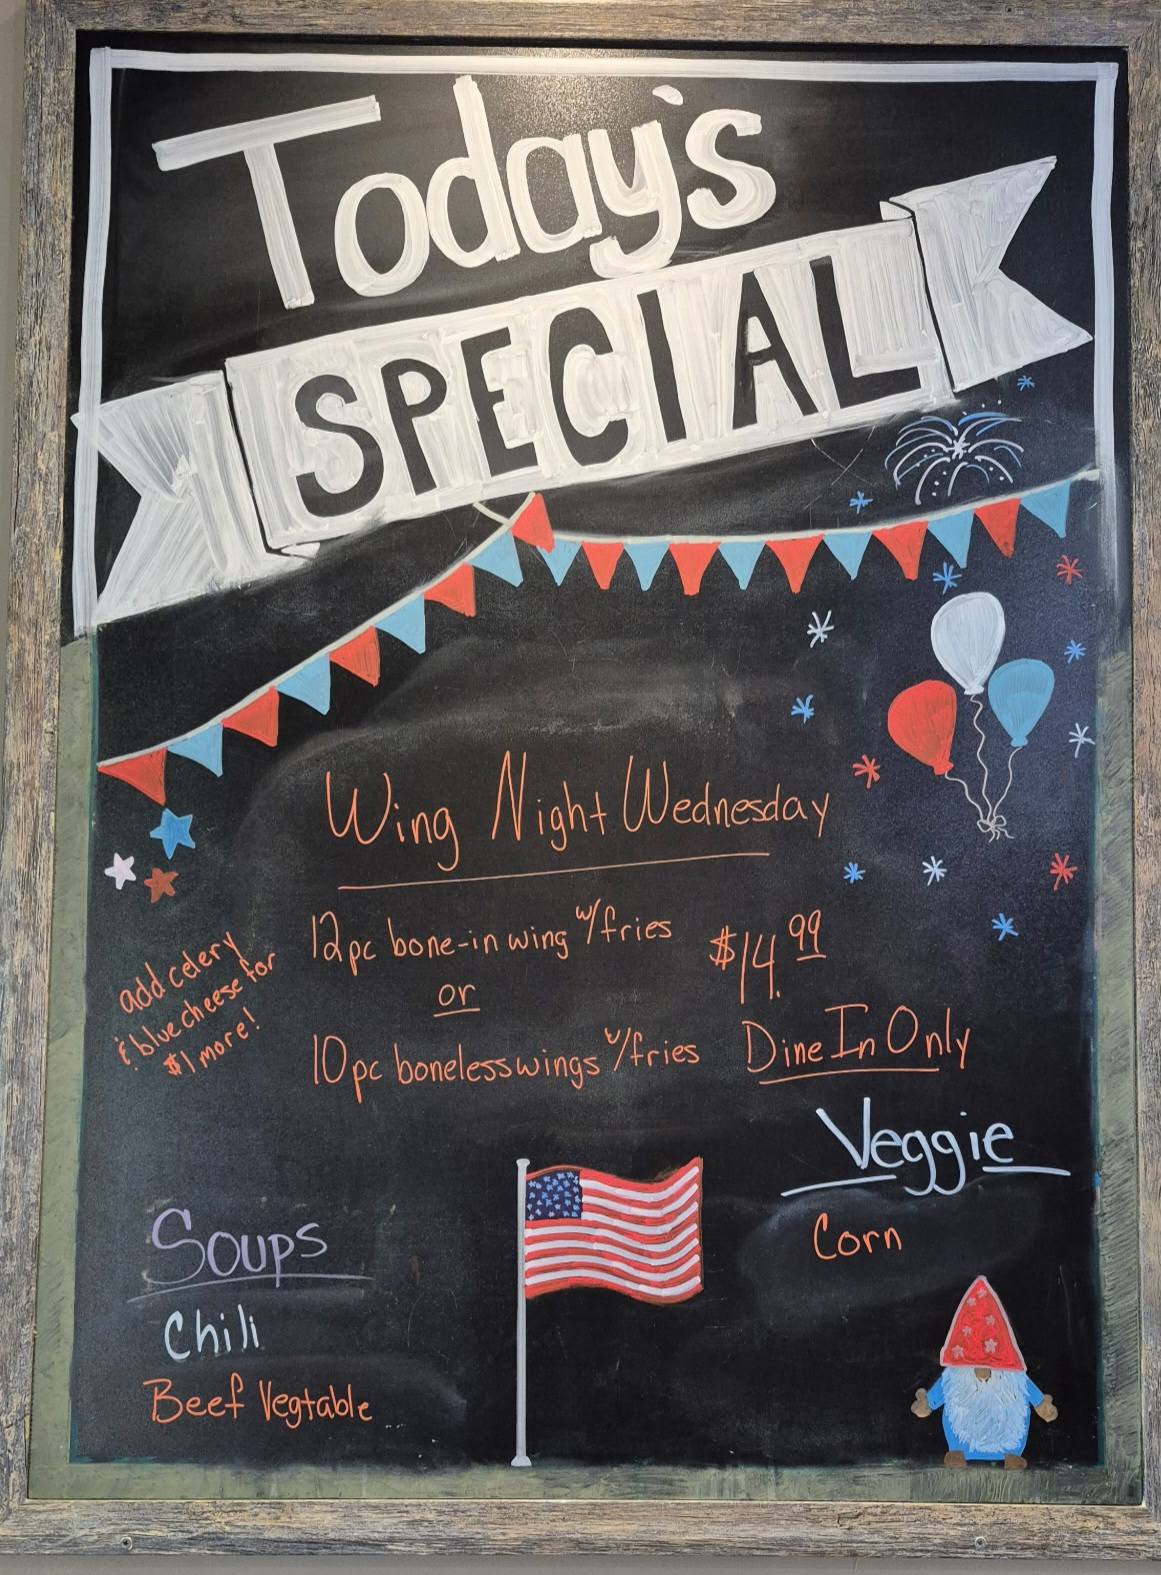 Today's
SPECIAL
Wing Night Wednesday
12pc bone-in wing w/fries
$14.99
or
10pc boneless wings w/fries
Dine In Only
add celery
& bluecheese for
$1 more!
Veggie
Corn
Soups
Chili
Beef Vegtable